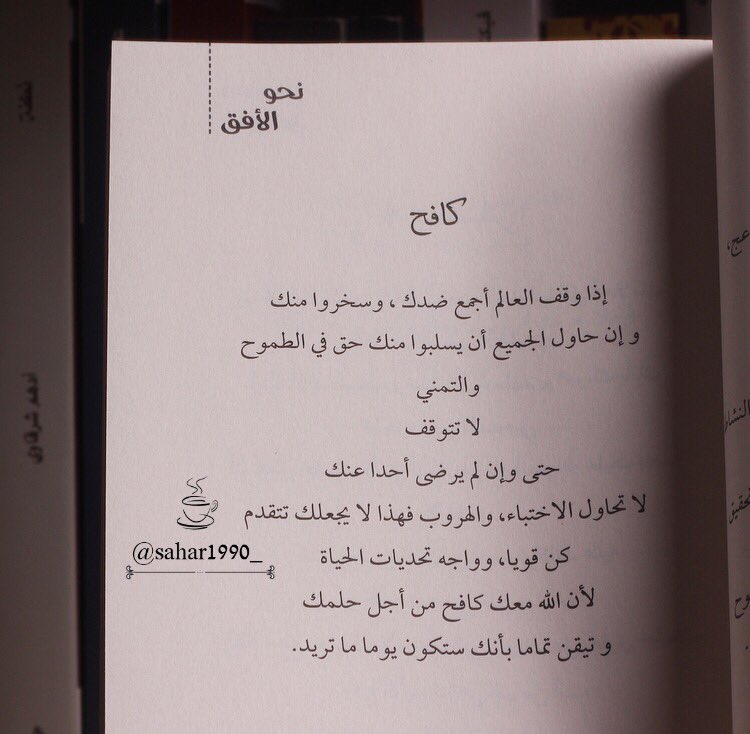 نحو
الأفق
كافح
إذا وقف العالم أجمع ضدك ، وسخروا منك
و إن حاول الجميع أن يسلبوا منك حق في الطموح
والتمني
لا تتوقف
حتى وإن لم يرضى أحدا عنك
لا تحاول الاختباء، والهروب فهذا لا يجعلك تتقدم
كن قويا، وواجه تحديات الحياة
لأن الله معك كافح من أجل حلمك
و تيقن تماما بأنك ستكون يوما ما تريد.
@sahar1990_
أدهم شرقاوي